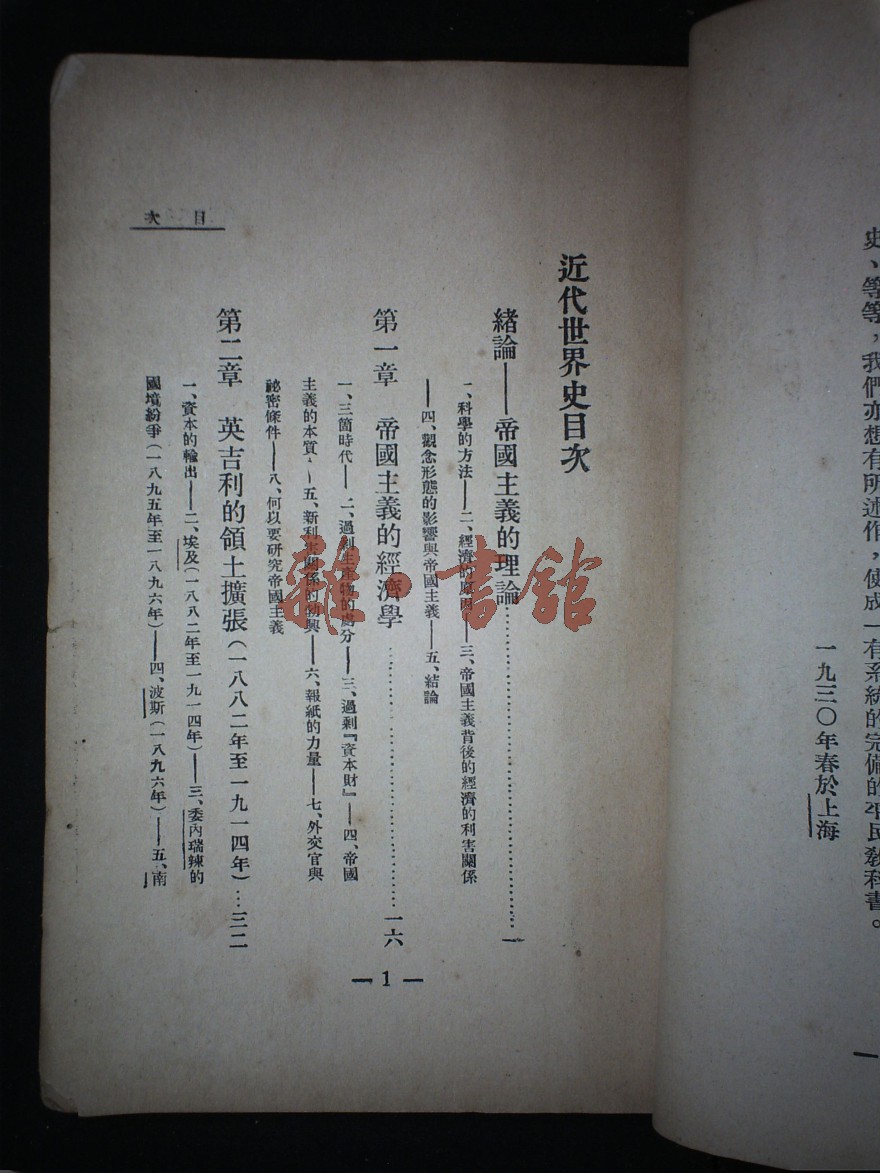 史、等等，我們亦想有所述作，使成一有系統的完備的平民教科書。
一九三〇年春於上海
一
目次
近代世界史目次
緒論——帝國主義的理論……一
一、科學的方法——二、經濟的原因——三、帝國主義背後的經濟的利害關係
——四、觀念形態的影響與帝國主義——五、結論
第一章 帝國主義的經濟學……一六
一、三箇時代——二、過剩生產物的處分——三、過剩『資本財』——四、帝國
主義的本質——五、新利害關係的勃興——六、報紙的力量——七、外交官與
祕密條件——八、何以要研究帝國主義
第二章 英吉利的領土擴張（一八八二年至一九一四年）…三二
一、資本的輸出——二、埃及（一八八二年至一九一四年）——三、委內瑞辣的
國境紛爭（一八九五年至一八九六年）——四、波斯（一八九六年）——五、南
— 1 —
龍·書館